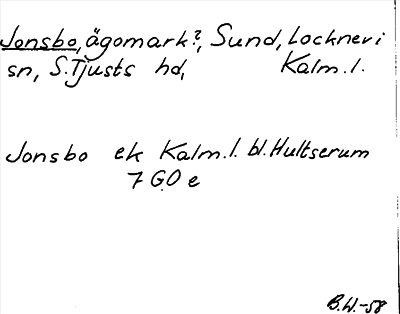 Jonsbo, ägomark?, Sund, Locknevi
sn, S. Tjusts hd, Kalm. l.
Jonsbo ek Kalm. l. bl. Hultserum
7 GO e
B.W.-58